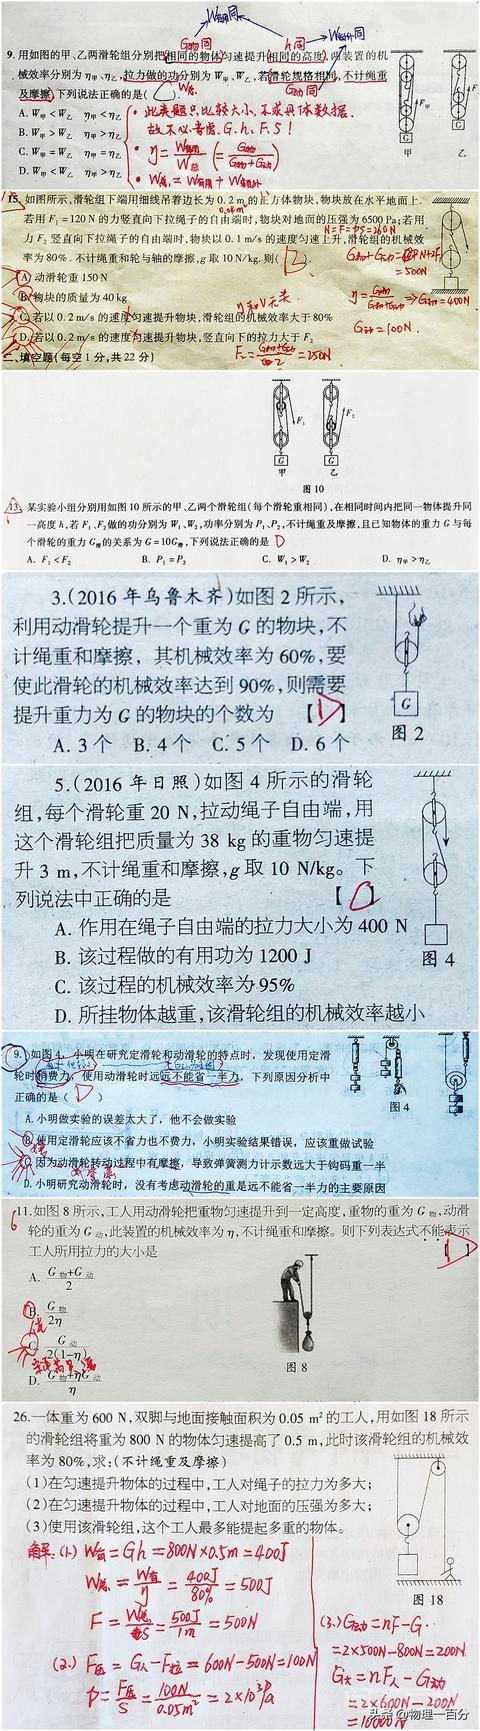 W有用同
W额外同
G物同
h同
9. 用如图的甲、乙两滑轮组分别把相同的物体匀速提升相同的高度,两装置的机
械效率分别为 η甲、η乙,拉力做的功分别为 W甲、W乙,若滑轮规格相同,不计绳重
及摩擦,下列说法正确的是(
W总
G动同
A. W甲<W乙 η甲<η乙
B. W甲>W乙 η甲>η乙
C. W甲=W乙 η甲=η乙
D. W甲<W乙 η甲=η乙
此类题只比较大小,不求具体数据.
故不必考虑G、h、F、S!
η=W有用/W总(=G物/G物+G动)
W总=W有用+W额外
F甲
F乙
G
G
甲
乙
15. 如图所示,滑轮组下端用细线吊着边长为 0.2 m 的正方体物块,物块放在水平地面上.
0.04m²
若用 F₁=120 N 的力竖直向下拉绳子的自由端时,物块对地面的压强为 6500 Pa;若用
N=F=PS=260N
力 F₂ 竖直向下拉绳子的自由端时,物块以 0.1 m/s 的速度匀速上升,滑轮组的机械效
率为 80%. 不计绳重和轮与轴的摩擦,g 取 10 N/kg. 则(B).
A. 动滑轮重 150 N
B. 物块的质量为 40 kg
C. 若以 0.2 m/s 的速度匀速提升物块,滑轮组的机械效率大于 80%
D. 若以 0.2 m/s 的速度匀速提升物块,竖直向下的拉力大于 F₂
η和V无关
=500N
G动=100N.
F₂=G物+G动/2=250N
二、填空题(每空 1 分,共 22 分)
F₁
F₂
G
G
甲
乙
图 10
13. 某实验小组分别用如图 10 所示的甲、乙两个滑轮组(每个滑轮重相同),在相同时间内把同一物体提升同
一高度 h,若 F₁、F₂做的功分别为 W₁、W₂,功率分别为 P₁、P₂,不计绳重及摩擦,且已知物体的重力 G 与每
个滑轮的重力 G滑的关系为 G=10G滑,下列说法正确的是 D
A. F₁<F₂ B. P₁=P₂ C. W₁>W₂ D. η甲>η乙
3.(2016 年乌鲁木齐)如图 2 所示,
利用动滑轮提升一个重为 G 的物块,不
计绳重和摩擦,其机械效率为 60%,要
使此滑轮的机械效率达到 90%,则需要
提升重力为 G 的物块的个数为 【D】
A. 3 个 B. 4 个 C. 5 个 D. 6 个
G
图 2
5.(2016 年日照)如图 4 所示的滑轮
组,每个滑轮重 20 N,拉动绳子自由端,用
这个滑轮组把质量为 38 kg 的重物匀速提
升 3 m,不计绳重和摩擦,g 取 10 N/kg。下
列说法中正确的是 【 】
A. 作用在绳子自由端的拉力大小为 400 N
B. 该过程做的有用功为 1200 J
C. 该过程的机械效率为 95%
D. 所挂物体越重,该滑轮组的机械效率越小
图 4
9. 如图 4,小明在研究定滑轮和动滑轮的特点时,发现使用定滑
轮时稍费力,使用动滑轮时远远不能省一半力,下列原因分析中
正确的是( D )
A. 小明做实验的误差太大了,他不会做实验
B. 使用定滑轮应该不省力也不费力,小明实验结果错误,应该重做试验
C. 因为动滑轮转动过程中有摩擦,导致弹簧测力计示数远大于钩码重一半
D. 小明研究动滑轮时,没有考虑动滑轮的重是远不能省一半力的主要原因
图 4
11. 如图 8 所示,工人用动滑轮把重物匀速提升到一定高度,重物的重为 G物,动滑
轮的重为 G动,此装置的机械效率为 η,不计绳重和摩擦。则下列表达式不能表示
工人所用拉力的大小是 【D】
A. G物+G动/2
B. G物/2η
C. G动/2(1-η)
D. G物+ηG动/η
图 8
26. 一体重为 600 N,双脚与地面接触面积为 0.05 m² 的工人,用如图 18 所示
的滑轮组将重为 800 N 的物体匀速提高了 0.5 m,此时该滑轮组的机械效
率为 80%,求:(不计绳重及摩擦)
(1)在匀速提升物体的过程中,工人对绳子的拉力为多大;
(2)在匀速提升物体的过程中,工人对地面的压强为多大;
(3)使用该滑轮组,这个工人最多能提起多重的物体。
图 18
解:(1.) W有=Gh=800N×0.5m=400J
W总=W有/η=400J/80%=500J
F=W总/S=500J/1m=500N
(2.) F压=G人-F拉=600N-500N=100N
P=F压/S=100N/0.05m²=2×10³Pa
(3.) G动=nF-G
=2×500N-800N=200N.
G大=nF人-G动
=2×600N-200N
=1000N
头条@物理一百分